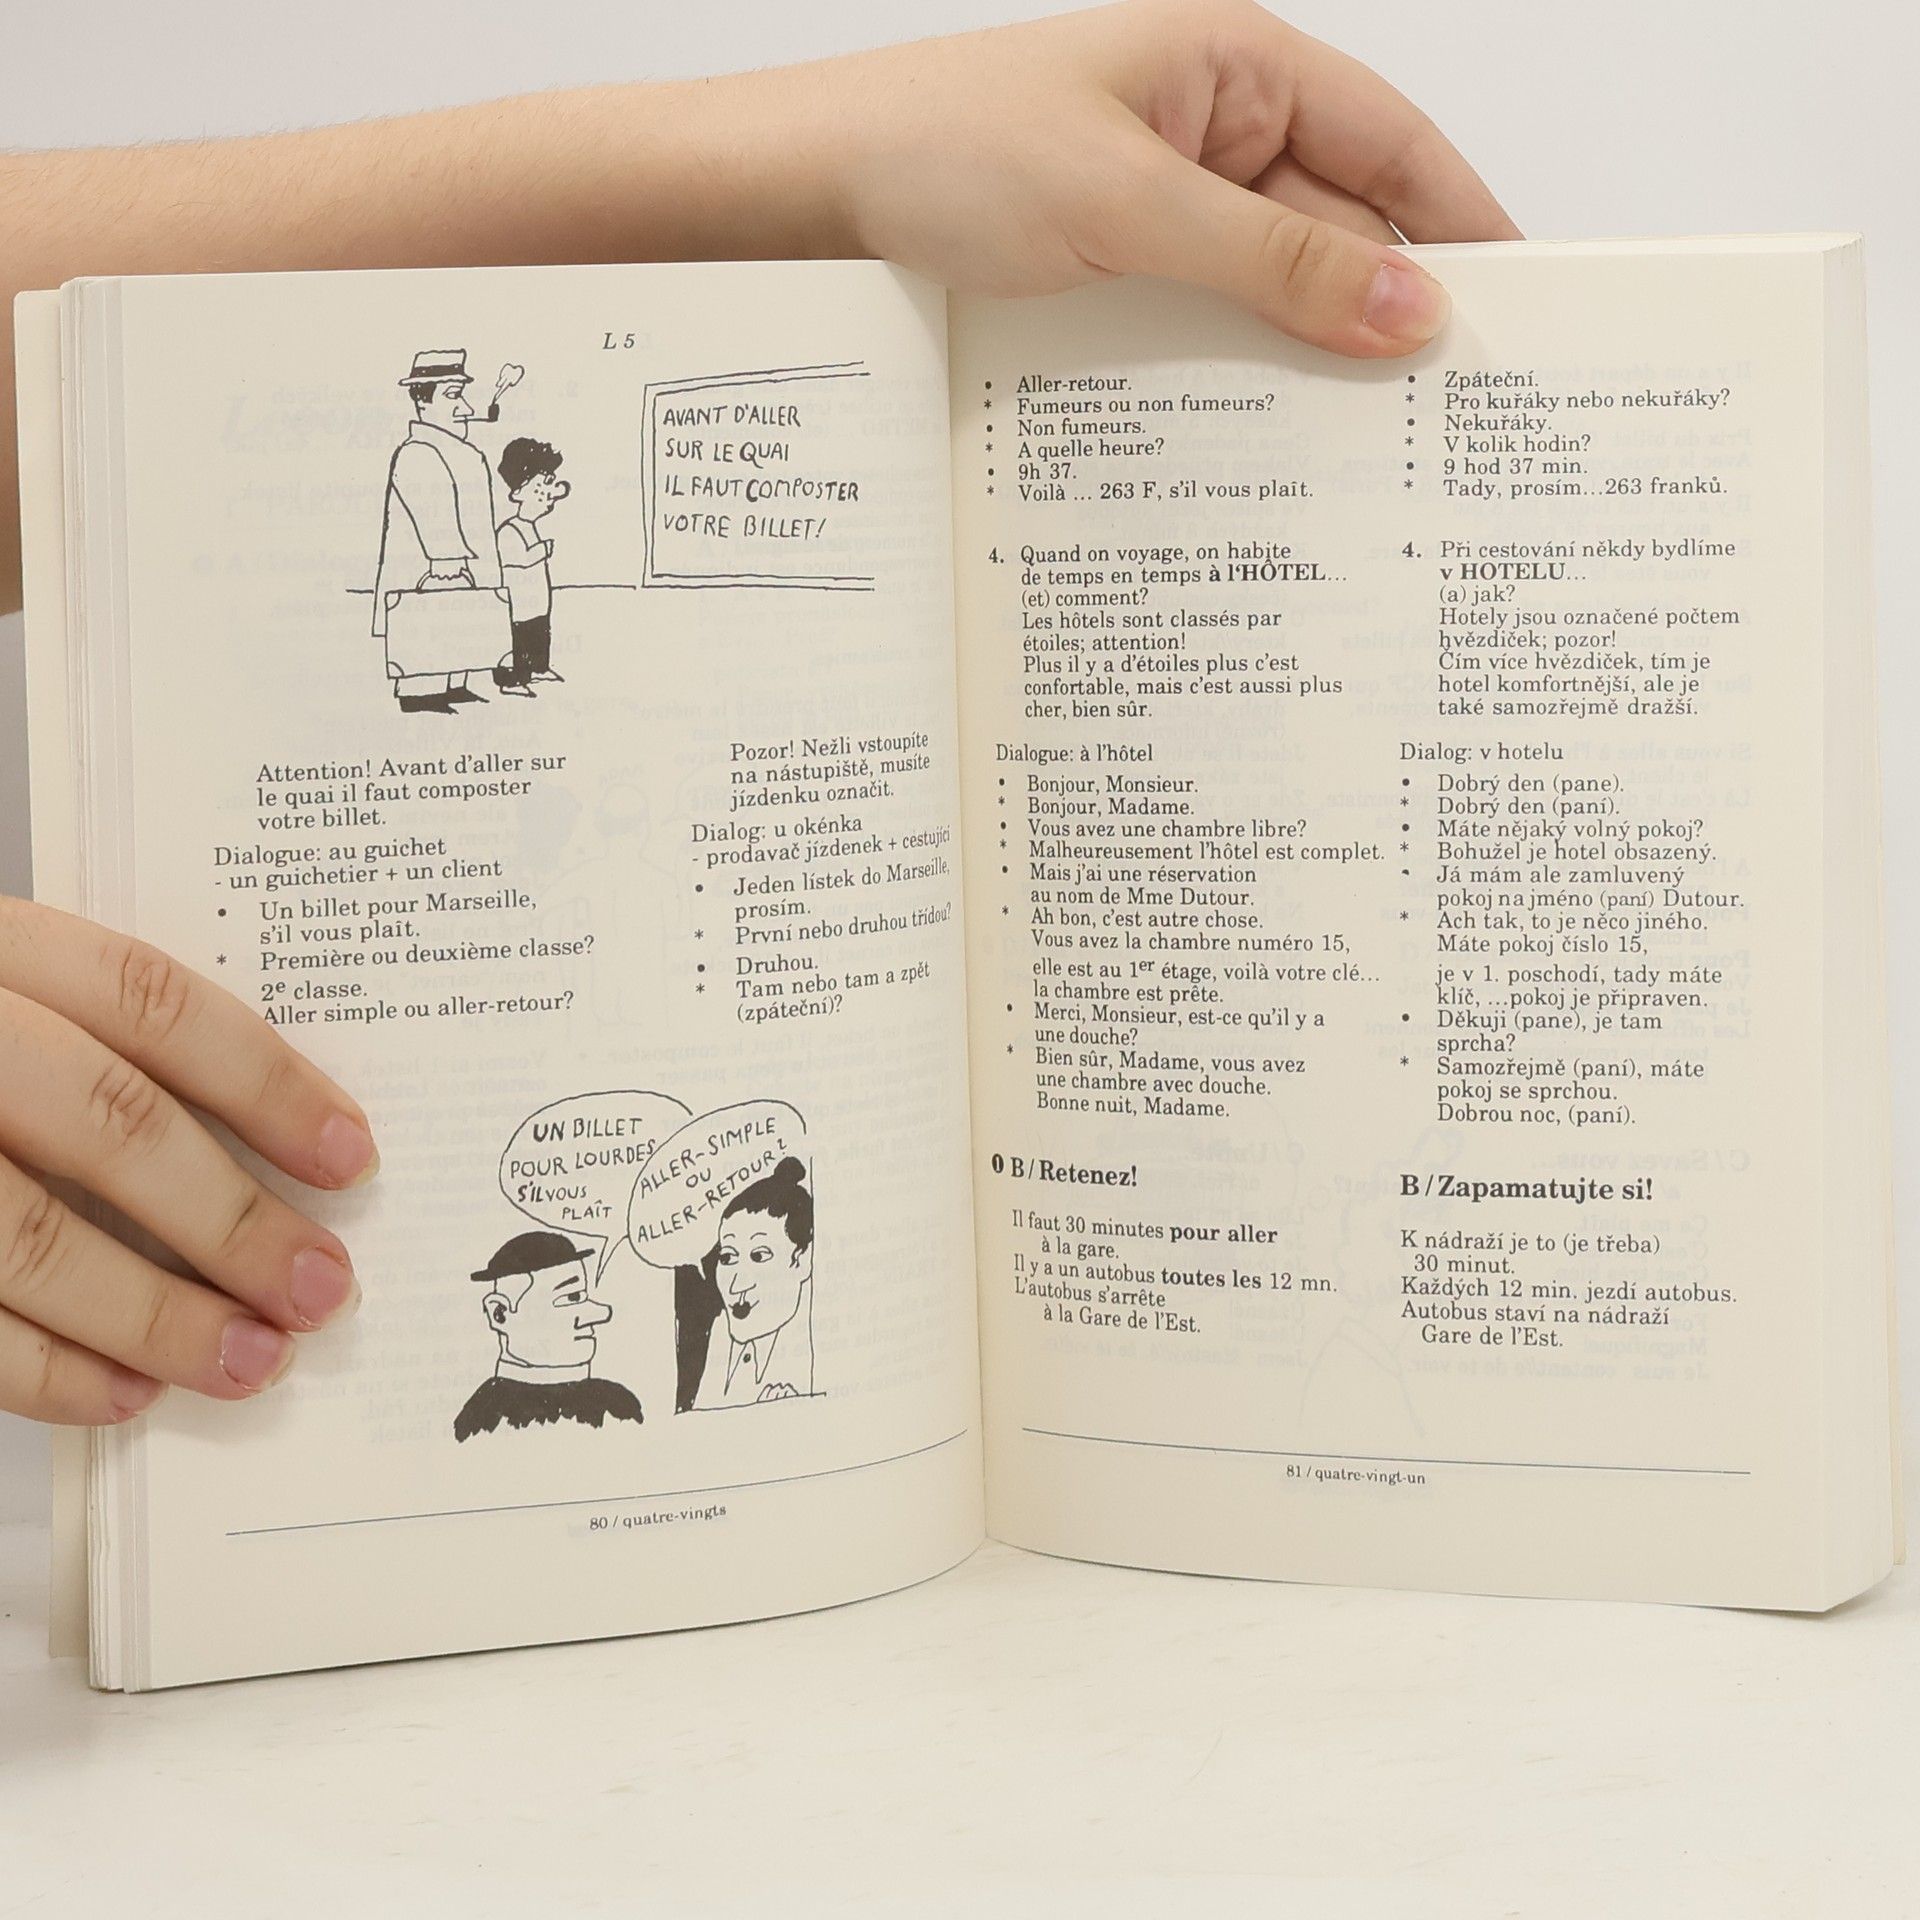 L 5
AVANT D'ALLER
SUR LE QUAI
IL FAUT COMPOSTER
VOTRE BILLET!
Attention! Avant d'aller sur
le quai il faut composter
votre billet.
Dialogue: au guichet
- un guichetier + un client
• Un billet pour Marseille,
s'il vous plaît.
* Première ou deuxième classe?
2e classe.
Aller simple ou aller-retour?
Pozor! Nežli vstoupíte
na nástupiště, musíte
jízdenku označit.
Dialog: u okénka
- prodavač jízdenek + cestující
• Jeden lístek do Marseille,
prosím.
* První nebo druhou třídou?
• Druhou.
* Tam nebo tam a zpět
(zpáteční)?
UN BILLET
POUR LOURDES
S'IL VOUS
PLAÎT
ALLER-SIMPLE
OU
ALLER-RETOUR?
80 / quatre-vingts
• Aller-retour.
* Fumeurs ou non fumeurs?
• Non fumeurs.
* A quelle heure?
• 9h 37.
* Voilà ... 263 F, s'il vous plaît.
4. Quand on voyage, on habite
de temps en temps à l'HÔTEL...
(et) comment?
Les hôtels sont classés par
étoiles; attention!
Plus il y a d'étoiles plus c'est
confortable, mais c'est aussi plus
cher, bien sûr.
Dialogue: à l'hôtel
• Bonjour, Monsieur.
* Bonjour, Madame.
• Vous avez une chambre libre?
* Malheureusement l'hôtel est complet.
• Mais j'ai une réservation
au nom de Mme Dutour.
* Ah bon, c'est autre chose.
Vous avez la chambre numéro 15,
elle est au 1er étage, voilà votre clé...
la chambre est prête.
• Merci, Monsieur, est-ce qu'il y a
une douche?
* Bien sûr, Madame, vous avez
une chambre avec douche.
Bonne nuit, Madame.
0 B/Retenez!
Il faut 30 minutes pour aller
à la gare.
Il y a un autobus toutes les 12 mn.
L'autobus s'arrête
à la Gare de l'Est.
• Zpáteční.
* Pro kuřáky nebo nekuřáky?
• Nekuřáky.
* V kolik hodin?
• 9 hod 37 min.
* Tady, prosím...263 franků.
4. Při cestování někdy bydlíme
v HOTELU...
(a) jak?
Hotely jsou označené počtem
hvězdiček; pozor!
Čím více hvězdiček, tím je
hotel komfortnější, ale je
také samozřejmě dražší.
Dialog: v hotelu
• Dobrý den (pane).
* Dobrý den (paní).
• Máte nějaký volný pokoj?
* Bohužel je hotel obsazený.
• Já mám ale zamluvený
pokoj na jméno (paní) Dutour.
* Ach tak, to je něco jiného.
Máte pokoj číslo 15,
je v 1. poschodí, tady máte
klíč, ...pokoj je připraven.
• Děkuji (pane), je tam
sprcha?
* Samozřejmě (paní), máte
pokoj se sprchou.
Dobrou noc, (paní).
B/Zapamatujte si!
K nádraží je to (je třeba)
30 minut.
Každých 12 min. jezdí autobus.
Autobus staví na nádraží
Gare de l'Est.
81 / quatre-vingt-un